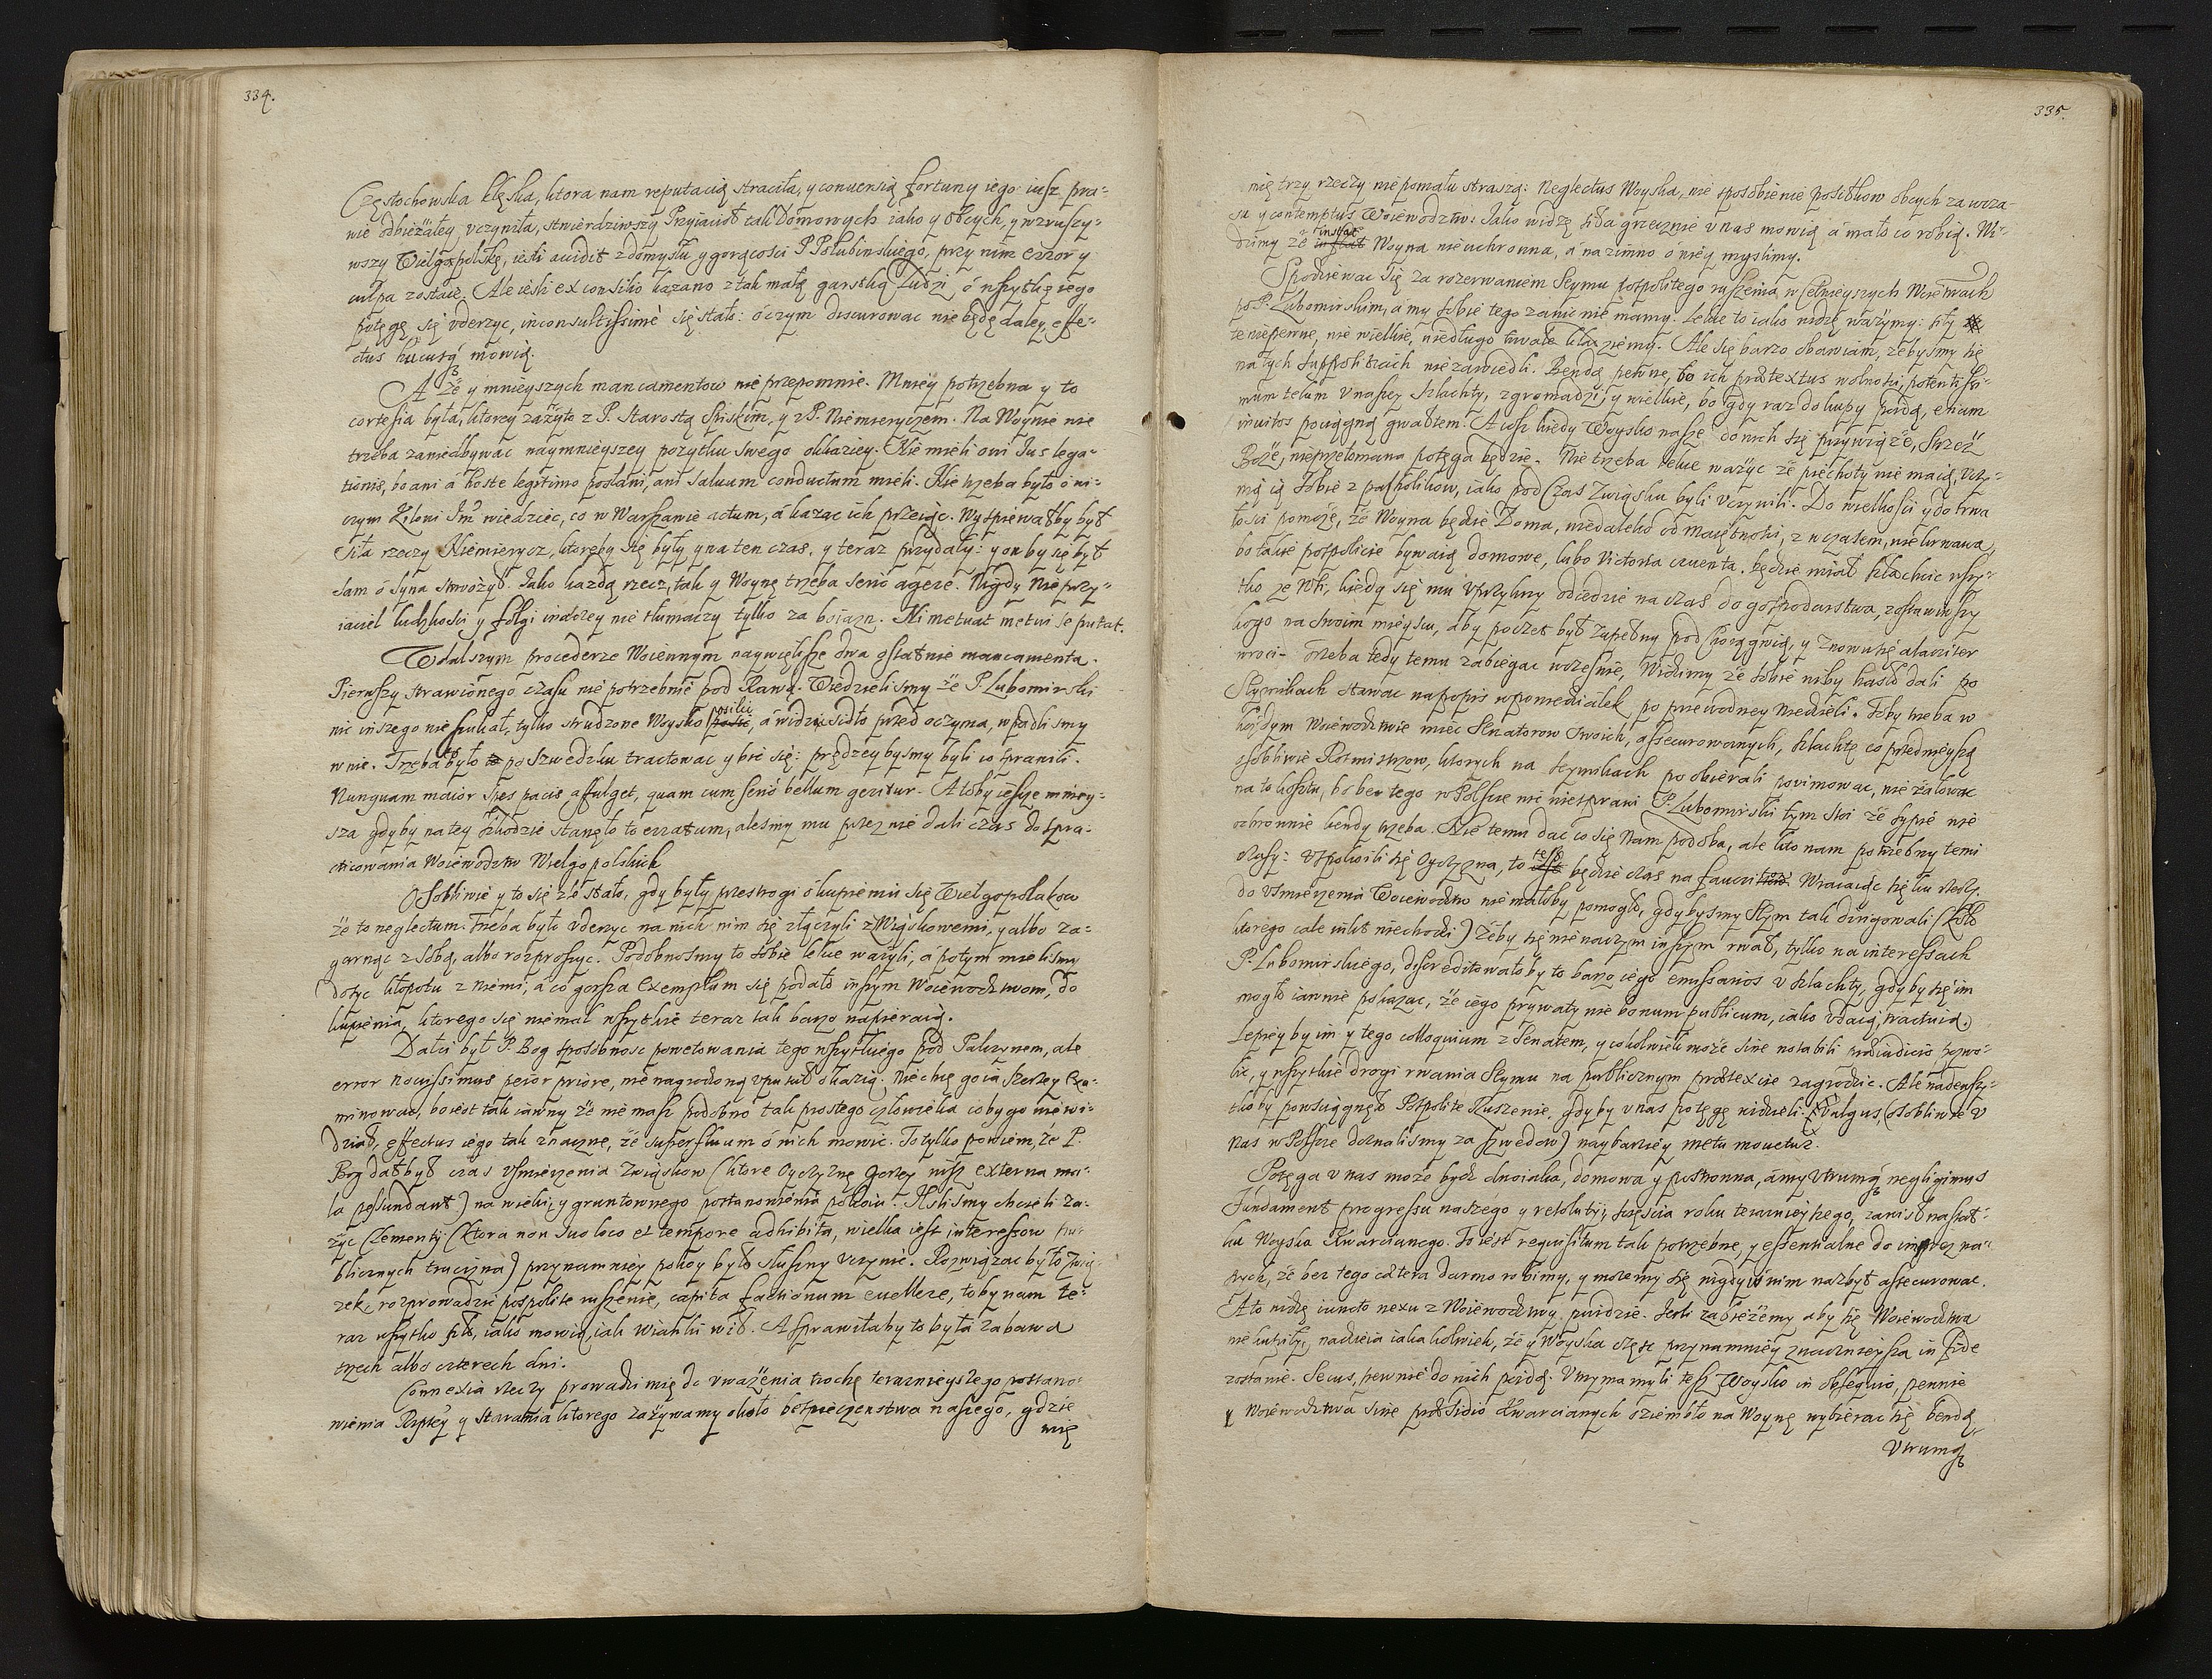 334.
Częstochowska klęska, ktora nam reputacią straciła, y conuersią fortuny iego iusz pra-
wie odbieżałey vczyniła, stwierdziwszy Przyiacioł tak Domowych iako y obcych, y wzruszy-
wszy Wielgopolskę, iesli accidit z domysłu y gorącosci P. Połubinskiego, przy nim error y
culpa zostaie. Ale iesli ex consilio kazano z tak małą garstką Ludzi, ó wszytkę iego
potęgę się vderzyc, inconsultissimè się stało: ó czym discurowac nie będę daley, effe-
ctus hucusq mowią.
A że y mnieyszych mancamentow nie przepomnie. Mniey potrzebna y to
cortesia była, ktorey zażyto z P. Starostą Spiskim, y z P. Niemieryczem. Na Woynie nie
trzeba zaniedbywac naymnieyszey pozytku swego okkaziey. Nie mieli oni Ius lega-
tionis, bo ani á hoste legitimo posłani, ani saluum conductum mieli. Nie trzeba było ó ni-
czym Kilowi Im wiedziec, co w Warszawie actum, á kazac ich przeiąc. Wyspiewałby był
siła rzeczy Niemierycz, ktoreby się były y na ten czas, y teraz przydały: y on by się był
sam ó syna strwożył. Iako kazdą rzecz, tak y Woynę trzeba seriò agere. Nigdy Nieprzy-
iaciel ludzkosci y folgi inaczey nie tłumaczy tylko za boiazn. Ni metuat metui se putat.
W dalszym procederze Woiennym naywiększe dwa ostatnie mancamenta.
Pierwszy strawionego czasu nie potrzebnie pod Rawą. Wiedzielismy że P. Lubomirski
nic inszego nie szukał, tylko strudzone Woysko posilic, á widząc sidło przed oczyma, wpadlismy
w nie. Trzeba było po Szwedzku tractowac y bic się: prędzey bysmy byli co sprawili.
Nunquam maior spes pacis affulget, quam cum seriò bellum geritur. A toby ieszcze mniey-
sza gdyby na tey szkodzie stanęło to erratum, alesmy mu przez nie dali czas do spra-
cticowania Woiewodztw Wielgopolskich
Osobliwie y to się źle stało, gdy były przestrogi ó kupieniu się Wielgopolakow
że to neglectum. Trzeba było vderzyc na nich nim się złączyli z Związkowemi, y albo za-
garnąc z sobą, albo rozproszyc. Podobnosmy to sobie lekce ważyli, á potym mielismy
dosyc kłopotu z niemi, á co gorsza Exemplum się podało inszym Woiewodztwom, do
kupienia, ktorego się niemal wszytkie teraz tak barzo napieraią.
Dałci był P. Bog sposobnosc powetowania tego wszytkiego pod Palczynem, ale
error nouissimus peior priore, nie nagrodzoną vpuscił okazią. Nie chcę go ia szerzey Exa-
minowac, bo iest tak iawny że nie masz podobno tak prostego człowieka coby go nie wi-
dział, effectus iego tak znaczne, że superfluum ó nich mowic. To tylko powiem, że P.
Bog dał był czas vsmierzenia związkow (ktore Oyczyznę gorzey nisz externa ma-
la pessundant) na wieki, y gruntownego postanowienia pokoiu. Iesliśmy chcieli za-
życ Clementij (ktora non suo loco et tempore adhibita, wielka iest interessow pu-
blicznych trucizna) przynamniey pokoy było słuszny vczynic. Rozwiązac było Zwią-
zek, rozprowadzic pospolite ruszenie, capita factionum euellere, toby nam te-
raz wszytko szło, iako mowią, iak wianki wił. A sprawiłaby to była zabawa
trzech albo czterech dni.
Connexia rzeczy prowadzi mię do vważenia trochę teraznieyszego postano-
wienia Rzptey y starania ktorego zażywamy około bespieczenstwa naszego, gdzie
mię
335.
mię trzy rzeczy nie pomału straszą: Neglectus Woyska, nie sposobienie posiłkow obcych za wcza-
su y contemptus Woiewodztw. Iako widzę siła grzecznie v nas mowią á mało co robią. Wi-
dzimy że instat Woyna nieuchronna, á na zimno ó niey myslimy.
Spodziewac się za rozerwaniem Seymu pospolitego ruszenia w celnieyszych Woiewach
po P. Lubomirskim, á my sobie tego zanic nie mamy. Lekce to iako widzę ważymy: siły
te niepewne, nie wielkie, niedługo trwałe kładziemy. Ale się barzo obawiam, żebysmy się
na tych suppositiach nie zawiedli. Bendą pewne, bo ich prætextus wolnosci, potentissi-
mum telum v naszey szlachty, zgromadzi; y wielkie, bo gdy raz do kupy poydą, etiam
inuitos pociągną gwałtem. A iesz kiedy Woysko nasze do nich się przywiąże, strzeż
Boże, nieprzełomana potęga będzie. Nie trzeba lekce ważyc że piechoty nie maią, vczy-
nią ią sobie z pacholikow, iako pod Czas Związku byli vczynili. Do wielkosci y do trwa
łosci pomoże, że Woyna będzie Doma, niedaleko od maiętnosci, z wczasem, nie krwawa,
bo takie pospolicie bywaią domowe, lubo Victoria cruenta. będzie miał szlachcic wszy-
tko ze Wsi, kiedy się mu vprzykrzy odiedzie na czas do gospodarstwa, zostawiwszy
kogo na swoim mieyscu, aby poczet był zupełny pod Chorągwią, y znowu się alacriter
wroci. Trzeba tedy temu zabiegac wczesnie, Widzimy że sobie niby hasło dali po
Seymikach stawac na popis w poniedziałek po przewodney Niedzieli. Toby trzeba w
kożdym Woiewodztwie miec Senatorow swoich, assecurowanych, szlachtę co przednieyszą
osobliwie Rotmistrzow, ktorych na Seymikach poobierali poyimowac, nie żałowac
na to kosztu, bo bez tego w Polszcze nic nie sprawi. P. Lubomirski tym stoi że sypie nie
ochronnie kendy trzeba. Nie temu dac co się nam podoba, ale kto nam potrzebny temi
czasy: vspokoili się Oyczyzna, to tesz będzie czas na fauor. Wracaiąc się ku rzeczy.
do vsmierzenia Woiewodztw nie małoby pomogło, gdybysmy Seym tak dirigowali (koło
ktorego cale nikt nie chodzi) żeby się nie na czym inszym rwał, tylko na interessach
P. Lubomirskiego, discreditowałoby to barzo iego emissarios v szlachty, gdyby się im
mogło iawnie pokazac, że iego prywaty nie bonum publicum, iako vdaią, tractuią.
Lepiey by im y tego colloquium z Senatem, y cokolwiek może sine notabili præiudicio pozwo-
lic, y wszytkie drogi rwania Seymu na publicznym prætexcie zagrodzic. Ale nadewszy-
tko by powsciągnęło Pospolite Ruszenie, gdyby v nas potęgę widzieli. Vulgus, (osobliwie v
nas w Polszcze doznalismy za Szwedow) naybarziey metu mouetur.
Potęga v nas może bydz dwoiaka, domowa y postronna, á my Vtrumq negligimus
Fundament progressu naszego y resolutij, szczęscia roku teraznieyszego, zawisł na stat-
ku Woyska Kwarcianego. To iest requisitum tak potrzebne, y essentialne do imprez na-
szych, że bez tego cætera darmo robimy, y możemy się nigdy ó nim nazbyt assecurowac.
A to widzę iuncto nexu z Woiewodztwy puidzie. Iesli zabieżemy aby się Woiewodztwa
nie kupiły, nadzieia iaka kolwiek, że y Woyska częsc przynamniey znacznieysza in fide
zostanie. Secus, pewnie do nich poidą. Vtrzymamyli tesz Woysko in obsequio, pewnie
y Woiewodztwa sine præsidio Kwarcianych oziembło na Woynę wybierac się bendą,
Vtrumq